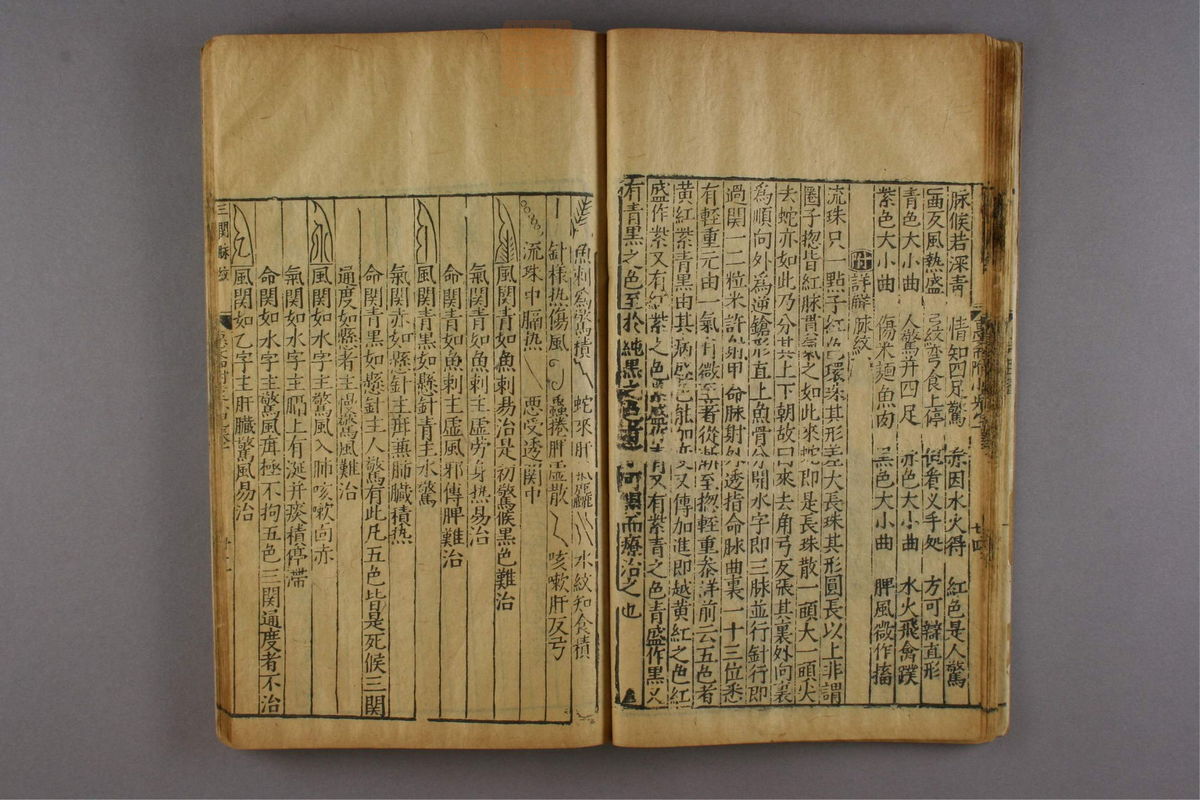 脉候若深青 情知四足驚 赤因水火得 紅色是人驚
風熱盛 彎食上停 看乂手処 方可辯直形
青色大小曲 人驚并四足 赤色大小曲 水火飛禽蹼
紫色大小曲 傷米麵魚肉 黑色大小曲 脾風微作搐
附 詳解脉紋
流珠只一點子紅色環珠其形差大長珠其形圓長以上非謂
圈子惣皆紅脉貫氣之如此來蛇即是長珠散一頭大一頭尖
去蛇亦如此乃分其上下朝故曰來去角弓反張其裏外向裏
為順向外為逆鎗形直上魚骨分開水字即三脉並行針行即
過関一二粒米許射甲命脉射外透指命脉曲裏一十三位悉
有輕重元由一氣而微至著從漸至惣輕重叅詳前云五色者
黃紅紫青黑由其病盛色能加変又傳加進即越黃紅之色紅
盛作紫又有紅紫之色紫盛作青又有紫青之色青盛作黑乂
有青黑之色至於純黑之色者不可得而療治之也
魚刺為驚積 蛇來肝 水紋知食積
針樣热傷風 肝虛散 咳嗽肝反弓
流珠中膈热 悪受透関中
風関青如魚刺易治是初驚候黑色難治
氣関青如魚刺主虛劳身热易治
命関青如魚刺主虛風邪傳脾難治
風関青黑如縣針青主水驚
氣関亦如懸針主疳兼肺臟積热
命関青黑如縣針主人驚有此凡五色皆是死候三関
通度如縣者主慢驚風難治
風関如水字主驚風入肺咳嗽面赤
氣関如水字主膈上有涎并痰積停滯
命関如水字主驚風疳極不拘五色三関通度者不治
風関如乙字主肝臟驚風易治
三関脉紋